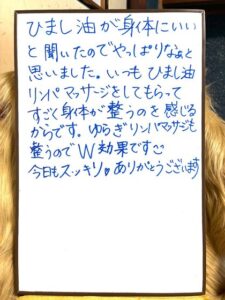 ひまし油が身体にいい
と聞いたのでやっぱりなぁと
思いました。いつもひまし油
リンパマッサージをしてもらって
すごく身体が整うのを感じる
からです。ゆらぎリンパマッサージも
整うのでW効果です☺
今日もスッキリ♥ありがとうございます